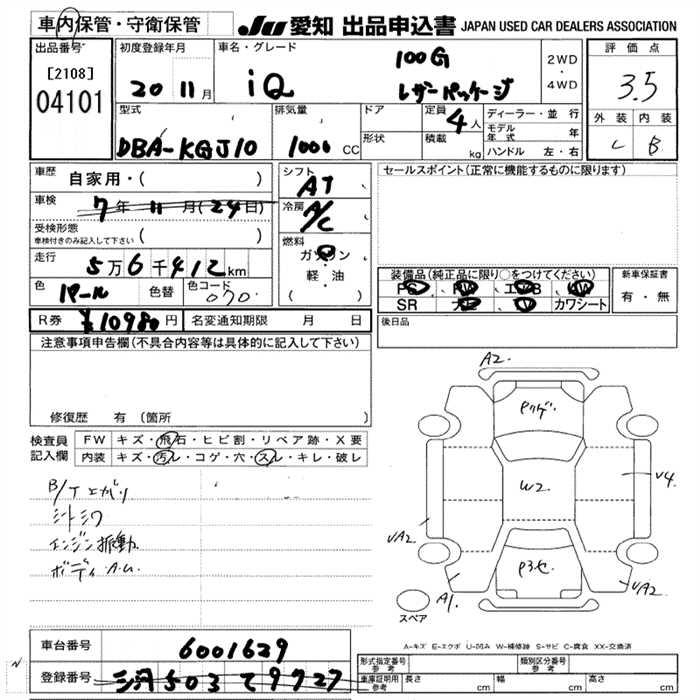 車内保管・守衛保管 JU 愛知 出品申込書 JAPAN USED CAR DEALERS ASSOCIATION
出品番号 [2108] 04101
初度登録年月 20 11月
車名・グレード iQ 100G レザーパッケージ
2WD・4WD
評価点 3.5
外装 C 内装 B
型式 DBA-KGJ10
排気量 1000 CC
ドア 形状
定員 4人 積載 kg
ディーラー・並行
モデル年式 年
ハンドル 左・右
車歴 自家用・( )
車検 7年11月(24日)
受検形態 車検付きのみ記入して下さい ( )
走行 5万6千412km
色 パール 色替 色コード 070
シフト AT
冷房 A/C
燃料 ガソリン 軽・油 ( )
セールスポイント(正常に機能するものに限ります)
装備品(純正品に限り○をつけてください)
PS PW エアB AW
SR ナビ TV カワシート
新車保証書 有・無
R券 ¥10980円 名変通知期限 月 日
後日品
注意事項申告欄(不具合内容等は具体的に記入して下さい)
修復歴 有(箇所 )
検査員記入欄
FW キズ・飛石・ヒビ割・リペア跡・X要
内装 キズ・汚レ・コゲ・穴・スレ・キレ・破レ
シートシワ
エンジン振動
A2.
Pクゲ
W2
P3セ
V4.
UA2
UA2
A1.
スペア
A-キズ E-エクボ U-凹み W-補修跡 S-サビ C-腐食 XX-交換済
車台番号 6001629
登録番号 三河503て9727
形式指定番号 参考 類別区分番号 参考
車庫証明用 参考 長さ cm 幅 cm 高さ cm